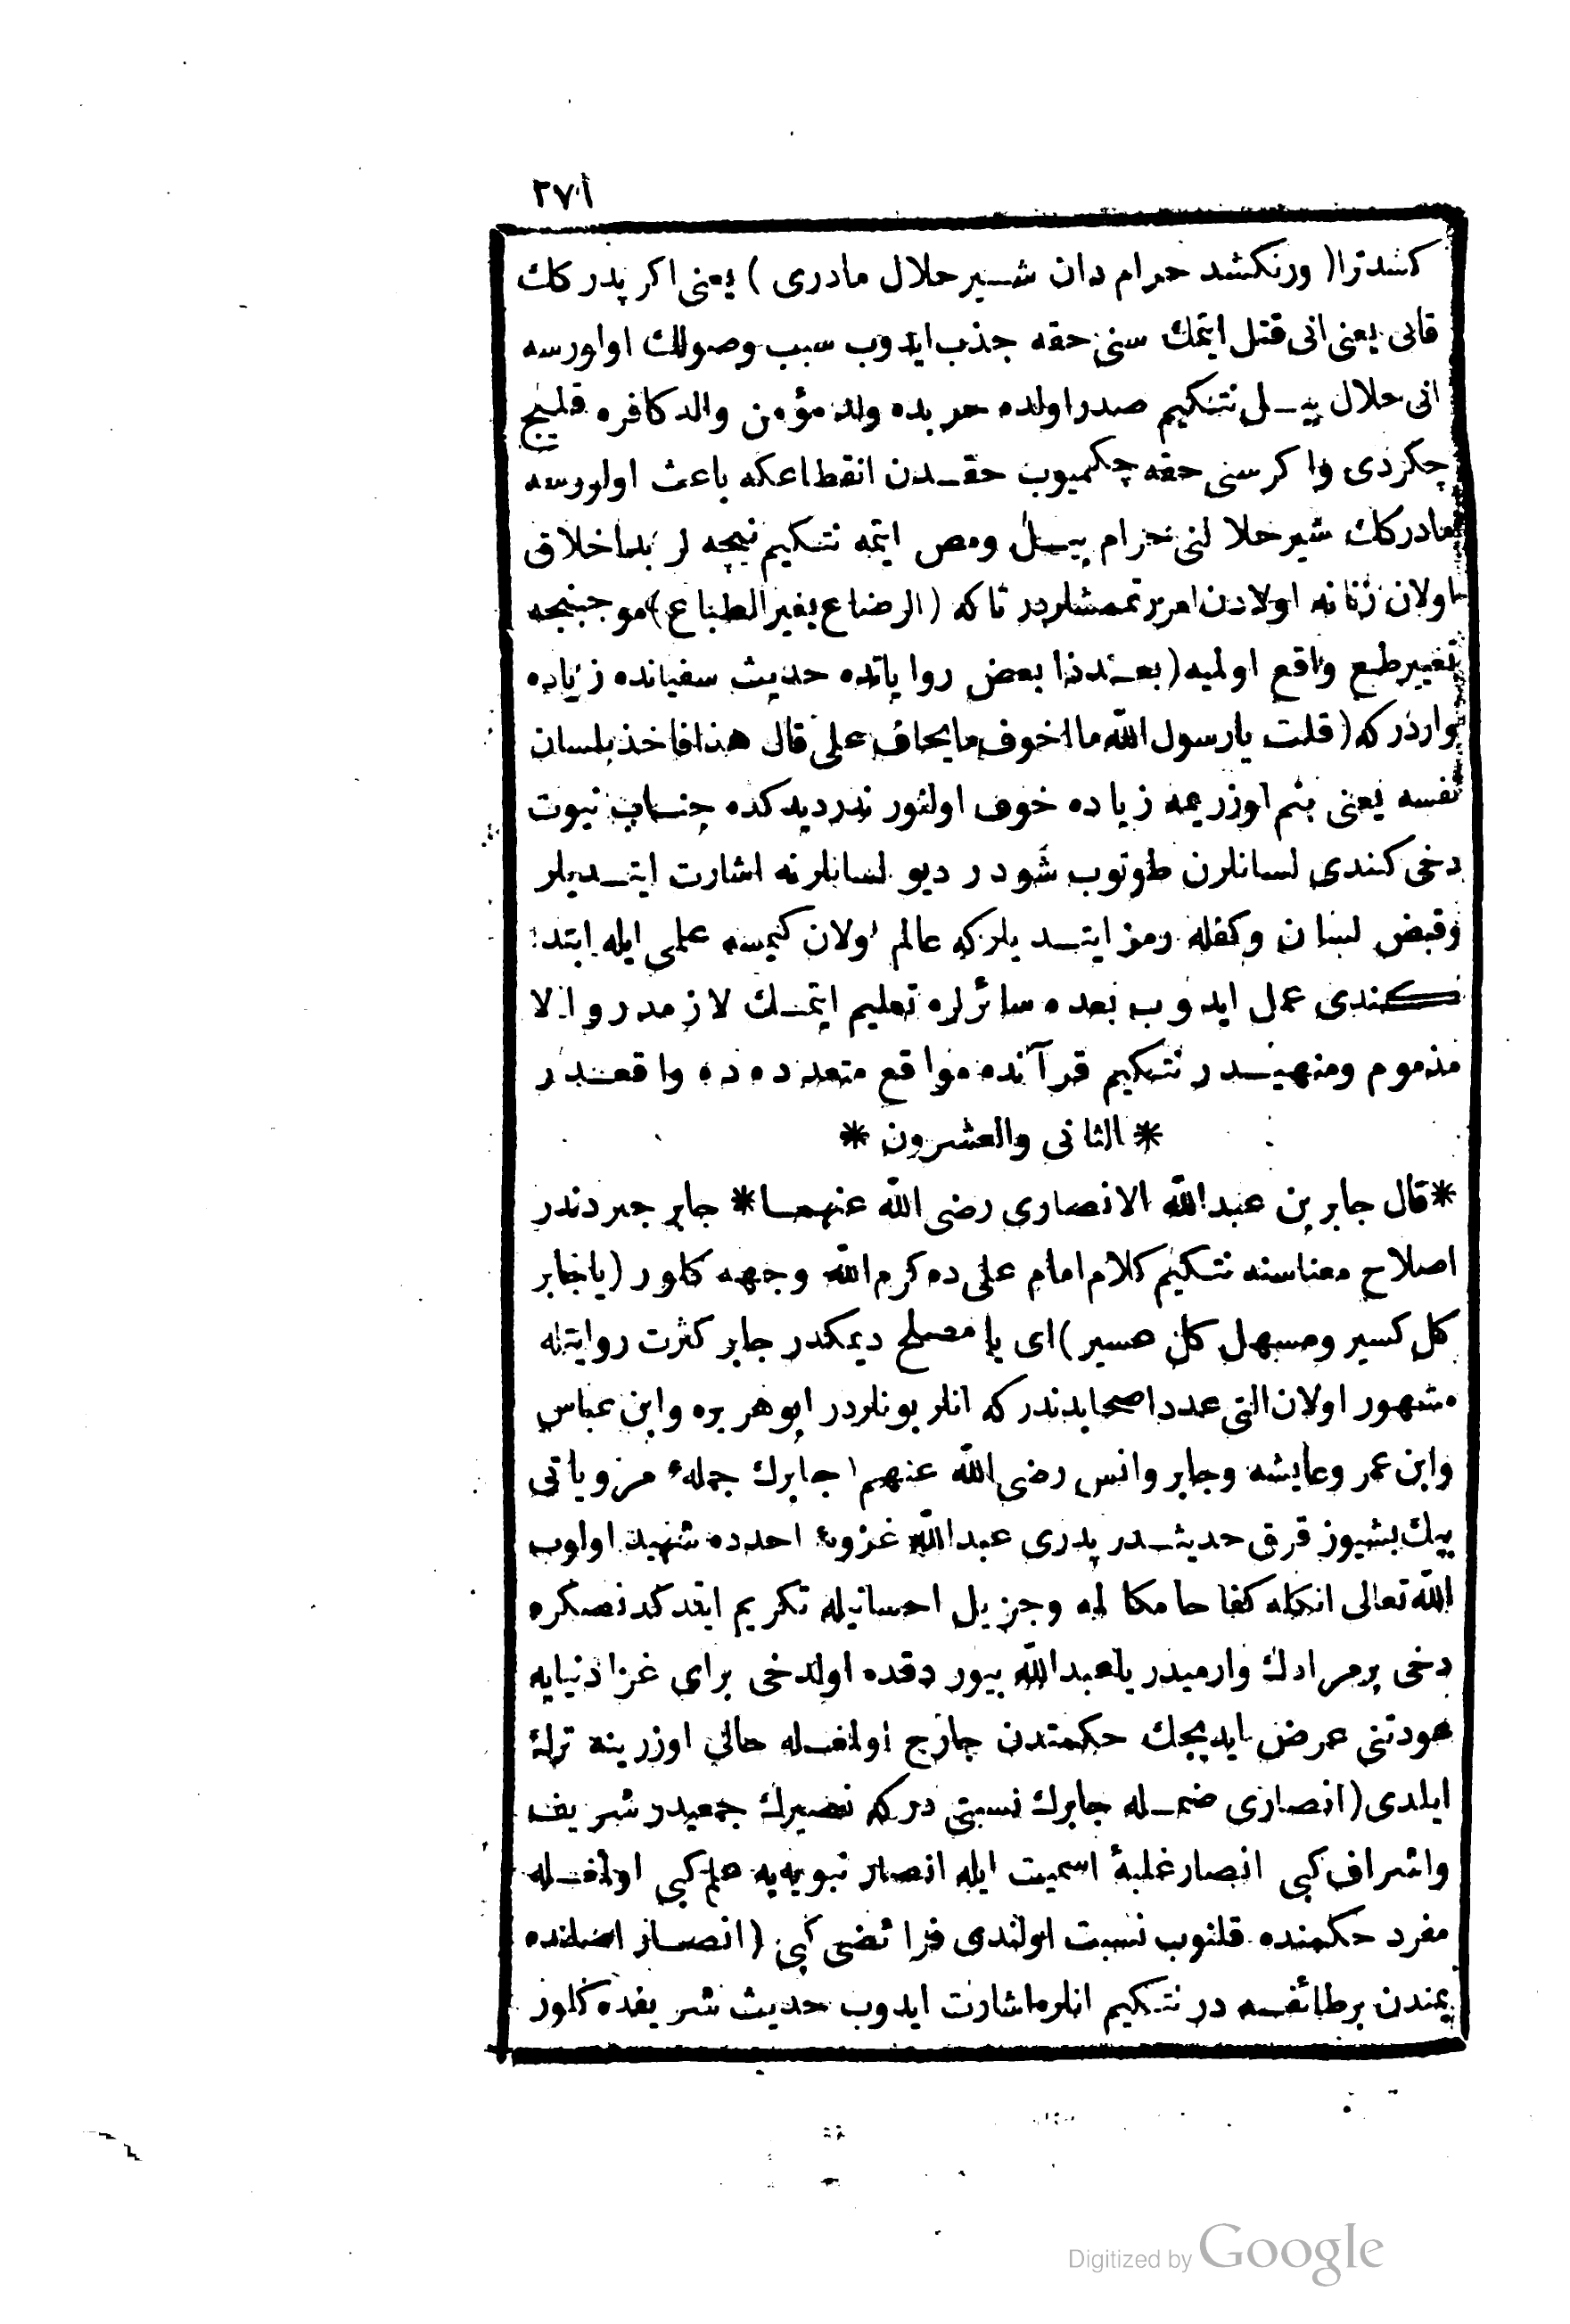 ٢٧١
كشد ترا ( ورنكشد حرام دان شير حلال مادرى ) يعنى اكر پدركك
قانى يعنى انى قتل ايتمك سنى حقه جذب ايدوب سبب وصولك اولورسه
انى حلال بيل نتكيم صدر اولده حربده ولد مؤمن والد كافره قليج
چكردى واكر سنى حقه چكميوب حقدن انقطاعكه باعث اولورسه
مادركك شير حلالنى حرام بيل ومص ايتمه نتكيم نيجه لر بد اخلاق
اولان زنانه اولادن امزرتممشلردر تاكه ( الرضاع يغير الطباع ) موجبنجه
تغيير طبع واقع اولميه ( بعد ذا بعض رواياتده حديث سفيانده زياده
واردركه ( قلت يارسول الله ما اخوف مايخاف على قال هذا فاخذ بلسان
نفسه يعنى بنم اوزريمه زياده خوف اولنور ندر ديدكده جناب نبوت
دخى كندى لسانلرن طوتوب شودر ديو لسانلرنه اشارت ايتديلر
وقبض لسان وكفله رمز ايتديلركه عالم اولان كيمسه علمى ايله ابتدا
كندى عمل ايدوب بعده سائرلره تعليم ايتمك لازمدر والا
مذموم ومنهيدر نتكيم قرآنده مواقع متعدده ده واقعدر
* الثانى والعشرون *
* قال جابر بن عبد الله الانصارى رضى الله عنهما * جابر جبردندر
اصلاح معناسنه نتكيم كلام امام على ده كرم الله وجهه كلور ( ياجابر
كل كسير ومسهل كل عسير ) اى يا مصلح ديمكدر جابر كثرت روايتله
مشهور اولان التى عدد اصحابدندركه انلر بونلردر ابو هريره وابن عباس
وابن عمر وعايشه وجابر وانس رضى الله عنهم جابرك جملهٔ مروياتى
بيك بشيوز قرق حديثدر پدرى عبد الله غزوهٔ احدده شهيد اولوب
الله تعالى انكله كفاحا مكالمه وجزيل احسانيله تكريم ايتدكدنصكره
دخى برمرادك وارميدر ياعبد الله بيوردقده اولدخى براى غزا دنيايه
عودتنى عرض ايديجك حكمتدن خارج اولمغله حالى اوزرينه ترك
ايلدى ( انصارى ضمله جابرك نسبتى دركه نصيرك جمعيدر شريف
واشراف كبى انصار غلبهٔ اسميت ايله انصار نبويه يه علم كبى اولمغله
مفرد حكمنده قلنوب نسبت اولندى فرائضى كبى ( انصار اصلنده
يمندن برطائفه در نتكيم انلره اشارت ايدوب حديث شريفده كلور
Digitized by Google